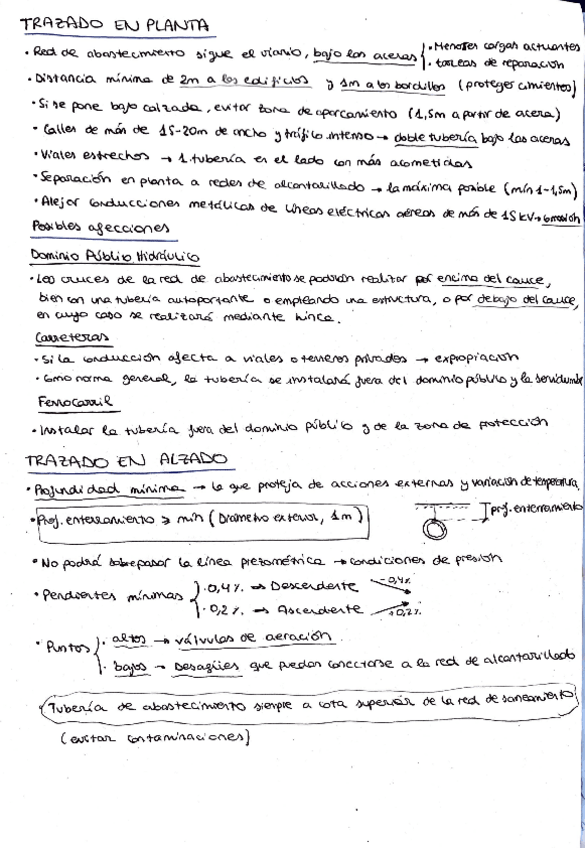 TRAZADO EN PLANTA
• Red de abastecimiento sigue el viario, bajo las aceras { • Menores cargas actuantes
• tareas de reparación
• Distancia mínima de 2m a los edificios y 1m a los bordillos (proteger cimientos)
• Si se pone bajo calzada, evitar zona de aparcamiento (1,5m a partir de acera)
• Calles de más de 15-20m de ancho y tráfico intenso → doble tubería bajo las aceras
• Viales estrechos → 1 tubería en el lado con más acometidas
• Separación en planta a redes de alcantarillado → la máxima posible (mín 1-1,5m)
• Alejar conducciones metálicas de líneas eléctricas aéreas de más de 15 kV → corrosión
Posibles afecciones
Dominio Público Hidráulico
• Los cruces de la red de abastecimiento se podrán realizar por encima del cauce,
bien con una tubería autoportante o empleando una estructura, o por debajo del cauce,
en cuyo caso se realizará mediante hinca.
Carreteras
• Si la conducción afecta a viales o terrenos privados → expropiación
• Como norma general, la tubería se instalará fuera del dominio público y la servidumb
Ferrocarril
• Instalar la tubería fuera del dominio público y de la zona de protección
TRAZADO EN ALZADO
• Profundidad mínima → la que proteja de acciones externas y variación de temperatura.
• Prof. enterramiento ≥ mín (Diámetro exterior, 1m)
prof. enterramiento
• No podrá sobrepasar la línea piezométrica → condiciones de presión
• Pendientes mínimas } • 0,4% ⇒ Descendente -0,4%
• 0,2% ⇒ Ascendente +0,2%
• Puntos } • altos → válvulas de aeración.
• bajos → Desagües que puedan conectarse a la red de alcantarillado
• Tubería de abastecimiento siempre a cota superior de la red de saneamiento
(evitar contaminaciones)